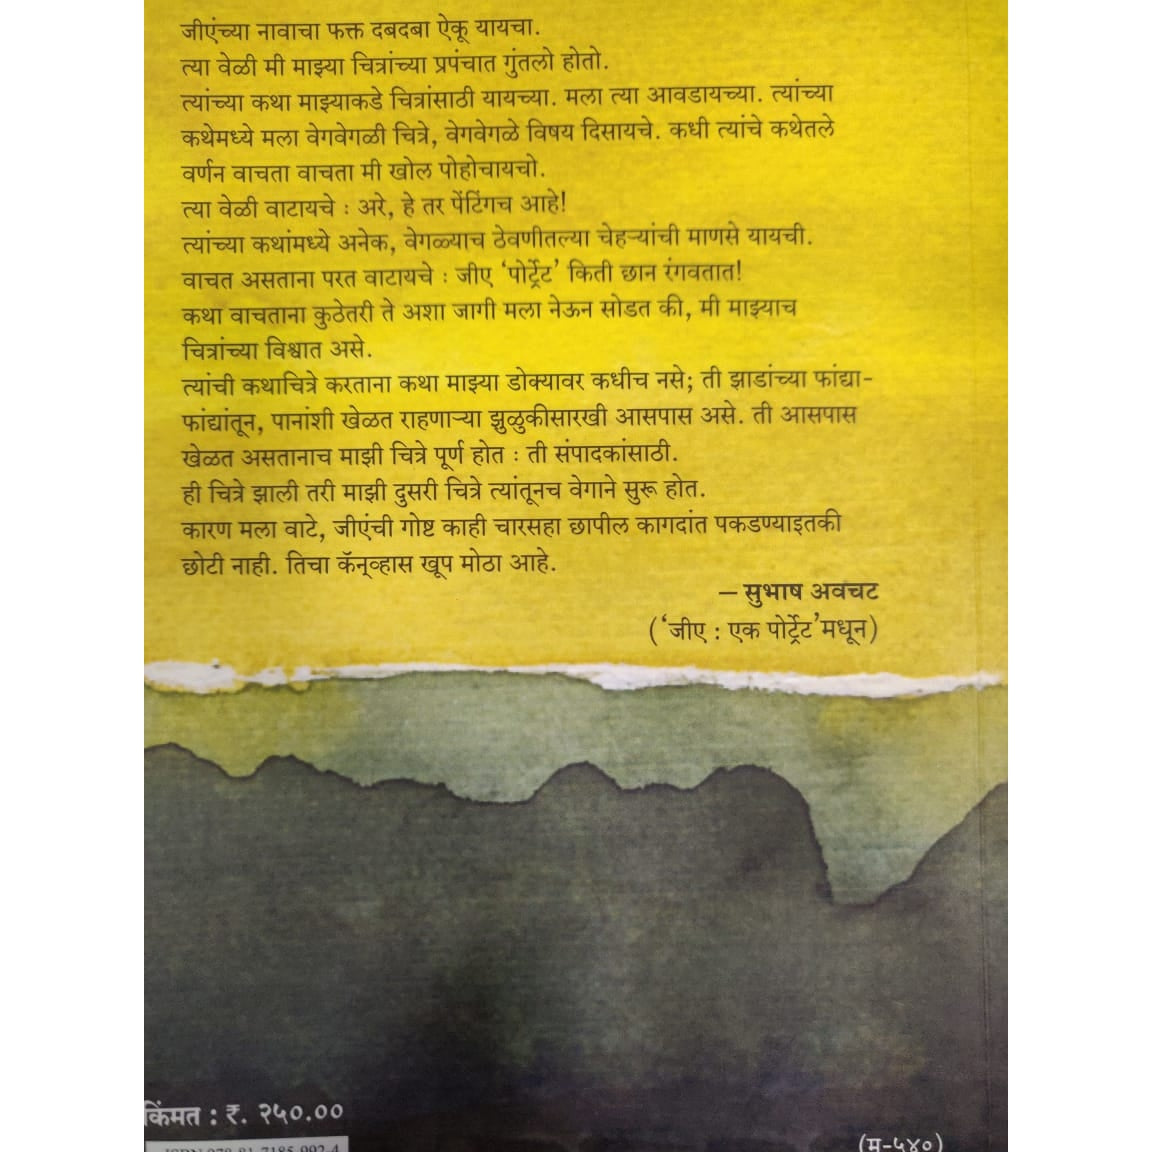 जीएंच्या नावाचा फक्त दबदबा ऐकू यायचा.
त्या वेळी मी माझ्या चित्रांच्या प्रपंचात गुंतलो होतो.
त्यांच्या कथा माझ्याकडे चित्रांसाठी यायच्या. मला त्या आवडायच्या. त्यांच्या
कथेमध्ये मला वेगवेगळी चित्रे, वेगवेगळे विषय दिसायचे. कधी त्यांचे कथेतले
वर्णन वाचता वाचता मी खोल पोहोचायचो.
त्या वेळी वाटायचे : अरे, हे तर पेंटिंगच आहे!
त्यांच्या कथांमध्ये अनेक, वेगळ्याच ठेवणीतल्या चेहऱ्यांची माणसे यायची.
वाचत असताना परत वाटायचे : जीए ‘पोर्ट्रेट’ किती छान रंगवतात!
कथा वाचताना कुठेतरी ते अशा जागी मला नेऊन सोडत की, मी माझ्याच
चित्रांच्या विश्वात असे.
त्यांची कथाचित्रे करताना कथा माझ्या डोक्यावर कधीच नसे; ती झाडांच्या फांद्या-
फांद्यांतून, पानांशी खेळत राहणाऱ्या झुळुकीसारखी आसपास असे. ती आसपास
खेळत असतानाच माझी चित्रे पूर्ण होत : ती संपादकांसाठी.
ही चित्रे झाली तरी माझी दुसरी चित्रे त्यांतूनच वेगाने सुरू होत.
कारण मला वाटे, जीएंची गोष्ट काही चारसहा छापील कागदांत पकडण्याइतकी
छोटी नाही. तिचा कॅनव्हास खूप मोठा आहे.
– सुभाष अवचट
(‘जीए : एक पोर्ट्रेट’मधून)
किंमत : रु. २५०.००
ISBN 978-81-7185-992-4
(म-५४०)